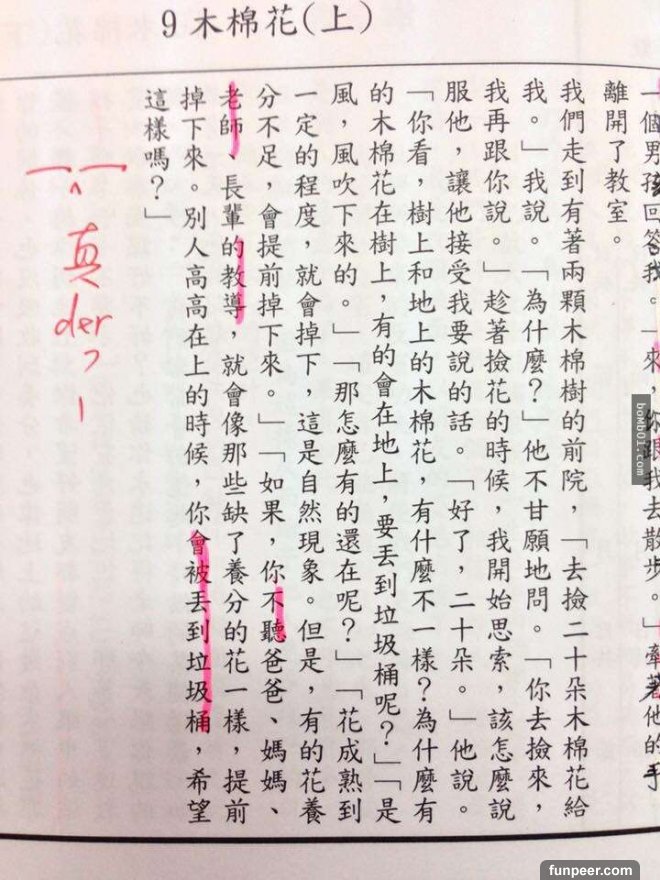 9 木棉花(上)
一個男孩回答我。「來，你跟我去散步。」牽著他的手
離開了教室。
我們走到有著兩顆木棉樹的前院，「去撿二十朵木棉花給
我。」我說。「為什麼？」他不甘願地問。「你去撿來，
我再跟你說。」趁著撿花的時候，我開始思索，該怎麼說
服他，讓他接受我要說的話。「好了，二十朵。」他說。
「你看，樹上和地上的木棉花，有什麼不一樣？為什麼有
的木棉花在樹上，有的會在地上，要丟到垃圾桶呢？」「是
風，風吹下來的。」「那怎麼有的還在呢？」「花成熟到
一定的程度，就會掉下，這是自然現象。但是，有的花養
分不足，會提前掉下來。」「如果，你不聽爸爸、媽媽、
老師、長輩的教導，就會像那些缺了養分的花一樣，提前
掉下來。別人高高在上的時候，你會被丟到垃圾桶，希望
這樣嗎？」
真der
boMb01.com
funpeer.com